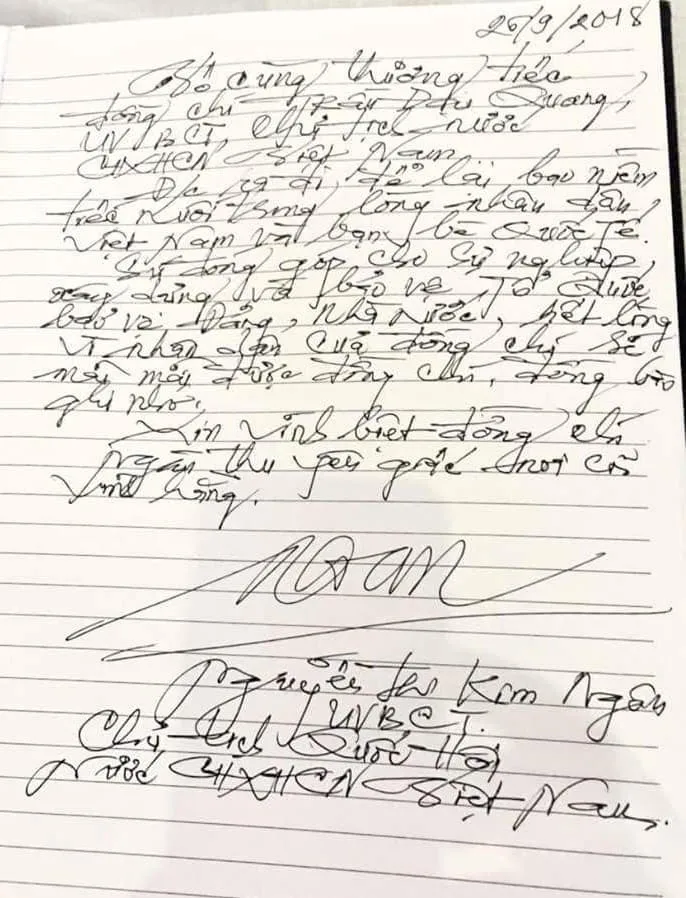 26/9/2018
Vô cùng thương tiếc
đồng chí Trần Đại Quang,
UVBCT, Chủ tịch nước
CHXHCN Việt Nam
Đ/c ra đi, để lại bao niềm
tiếc nuối trong lòng nhân dân,
Việt Nam và bạn bè Quốc Tế.
Sự đóng góp cho sự nghiệp,
xây dựng và bảo vệ Tổ Quốc
bảo vệ Đảng, Nhà Nước, hết lòng
vì nhân dân của đồng chí sẽ
mãi mãi được đồng chí, đồng bào
ghi nhớ.
Xin vĩnh biệt đồng chí
Ngàn thu yên giấc nơi cõi
vĩnh hằng.
Ngân
Nguyễn Thị Kim Ngân
UVBCT.
Chủ tịch Quốc Hội
Nước CHXHCN Việt Nam.